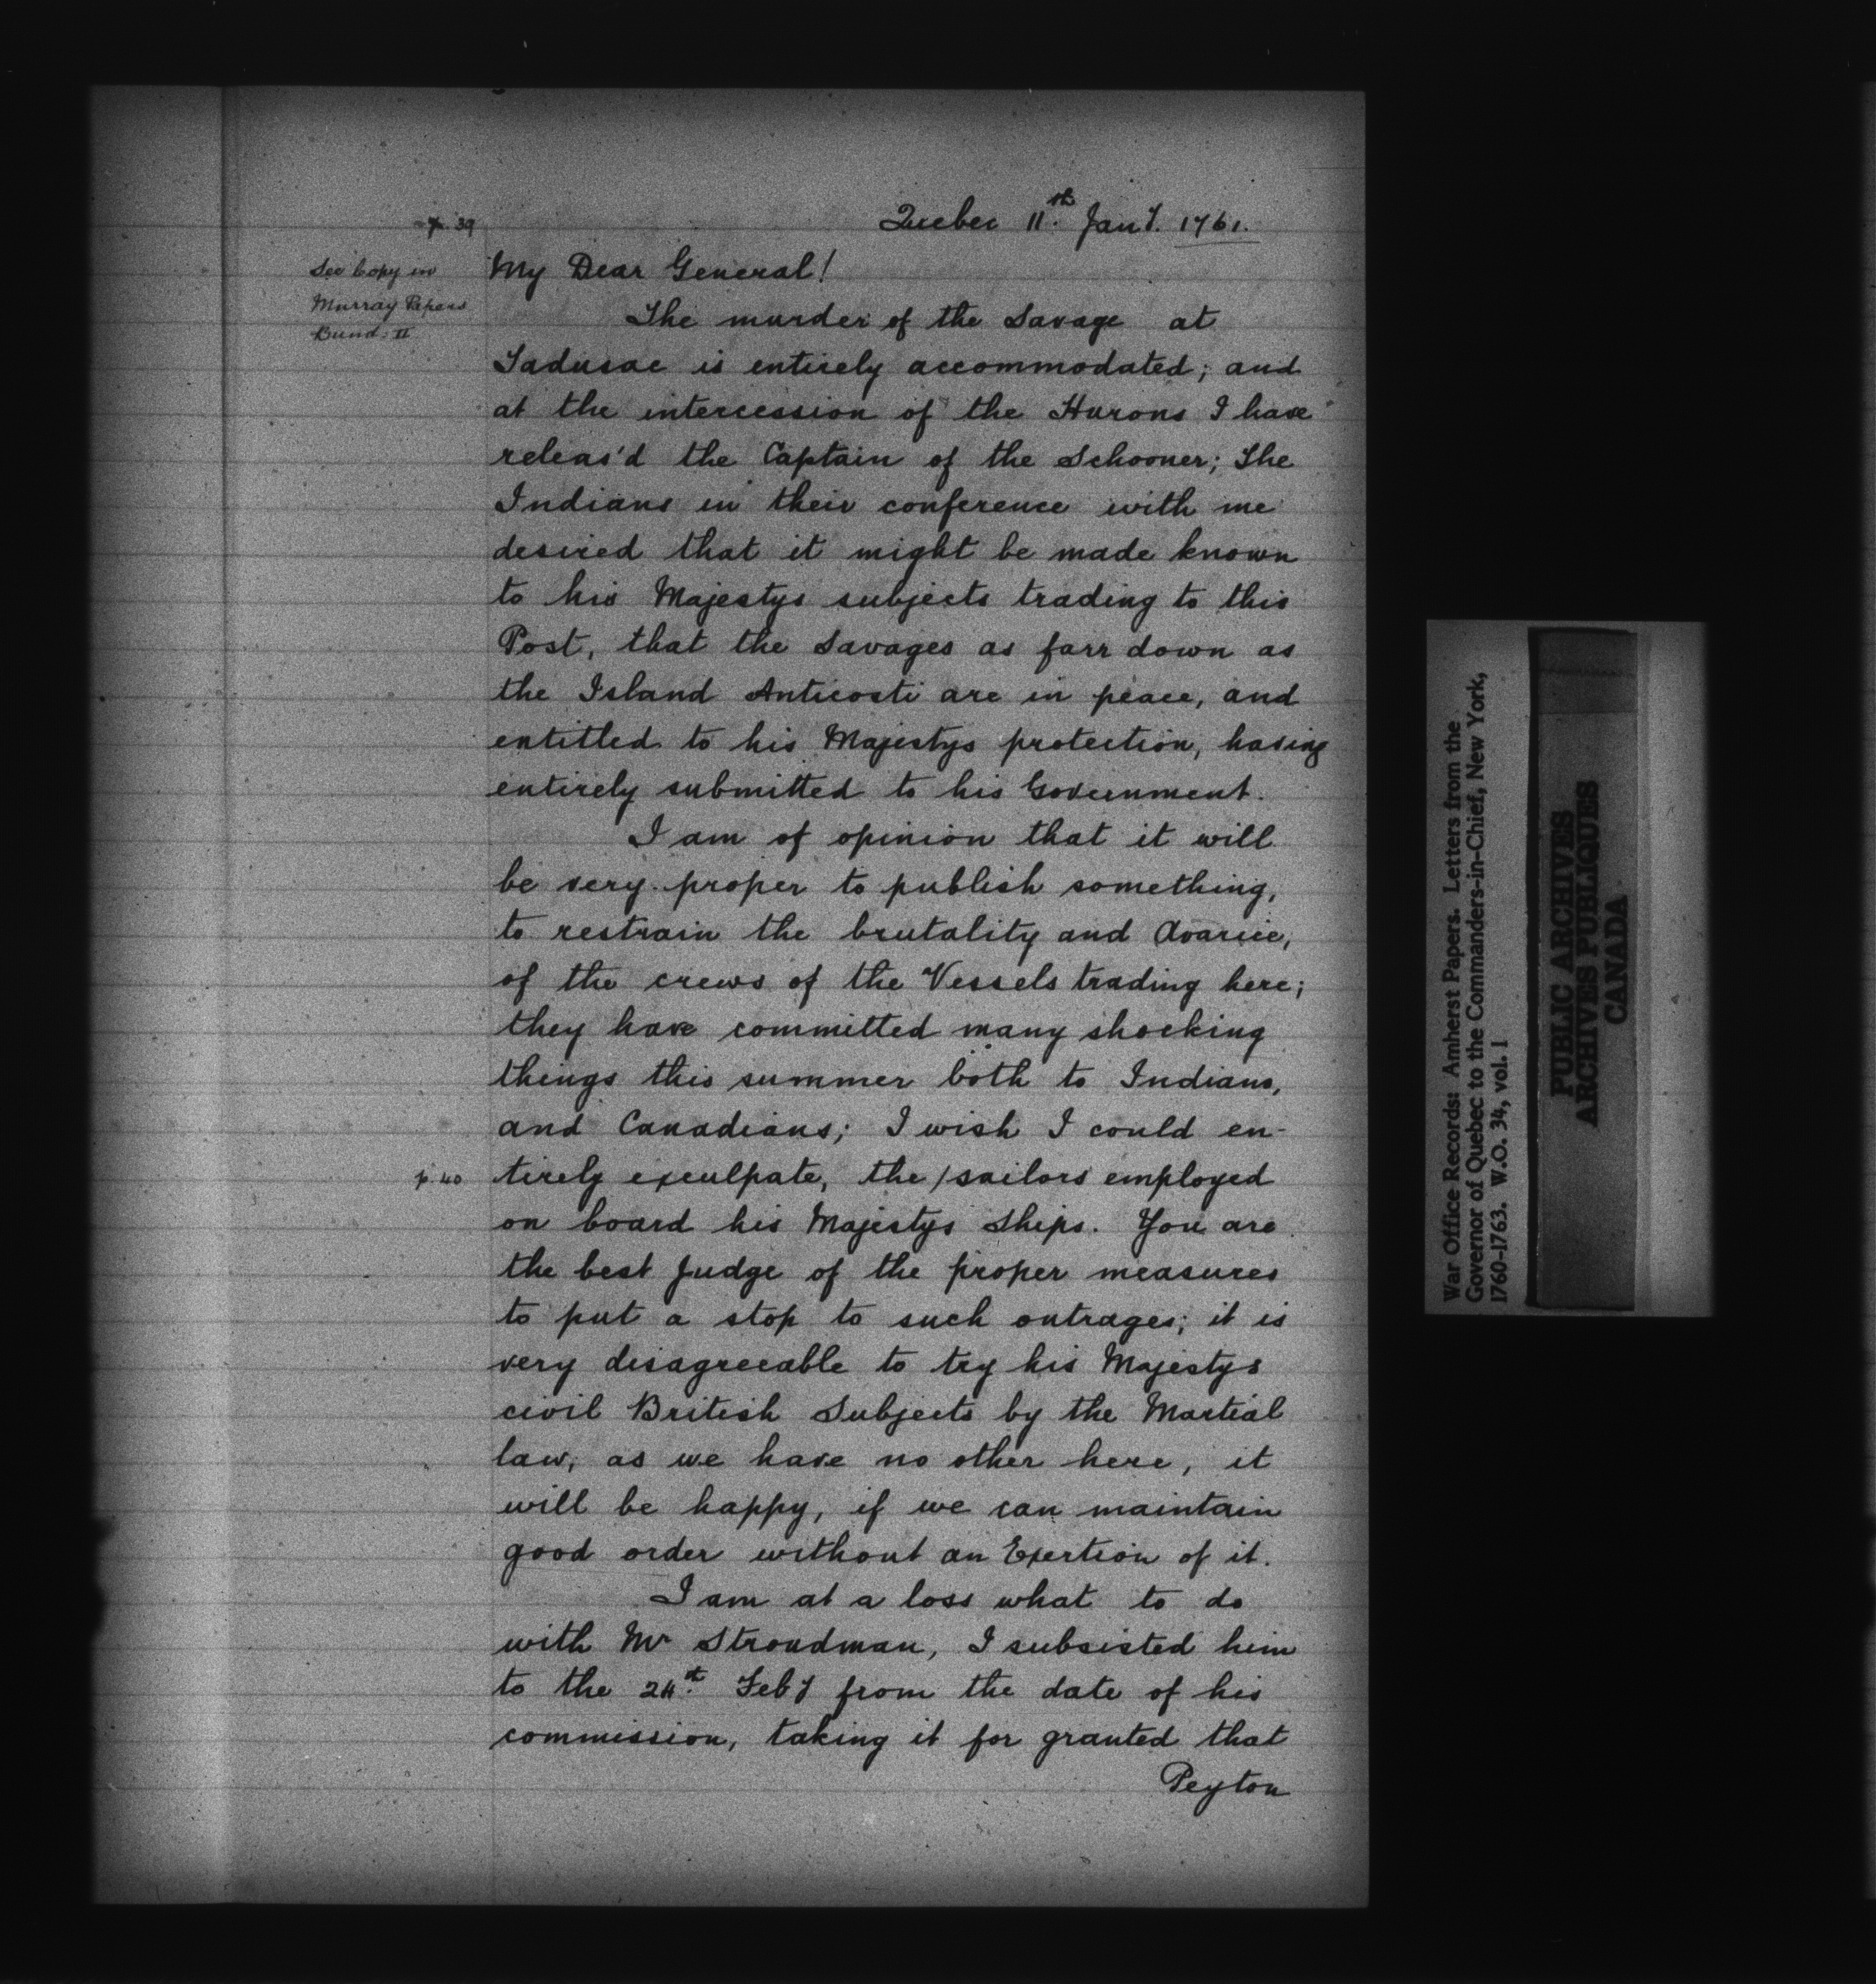 p. 39
Quebec 11th. Jany. 1761.
See Copy in
Murray Papers
Bund: II
My Dear General!
The murder of the Savage at
Tadusac is entirely accommodated; and
at the intercession of the Hurons I have
releas'd the Captain of the Schooner; The
Indians in their conference with me
desired that it might be made known
to his Majestys subjects trading to this
Post, that the Savages as farr down as
the Island Anticosti are in peace, and
entitled to his Majestys protection, having
entirely submitted to his Government.
I am of opinion that it will
be very proper to publish something,
to restrain the brutality and Avarice,
of the crews of the Vessels trading here;
they have committed many shocking
things this summer both to Indians,
and Canadians; I wish I could en-
p. 40
tirely exculpate, the / sailors employed
on board his Majestys Ships. You are
the best Judge of the proper measures
to put a stop to such outrages; it is
very disagreeable to try his Majestys
civil British Subjects by the Martial
law, as we have no other here, it
will be happy, if we can maintain
good order without an Exertion of it.
I am at a loss what to do
with Mr Stroudman, I subsisted him
to the 24th. Feby from the date of his
commission, taking it for granted that
Peyton
War Office Records: Amherst Papers. Letters from the
Governor of Quebec to the Commanders-in-Chief, New York,
1760-1763. W.O. 34, vol. 1
PUBLIC ARCHIVES
ARCHIVES PUBLIQUES
CANADA